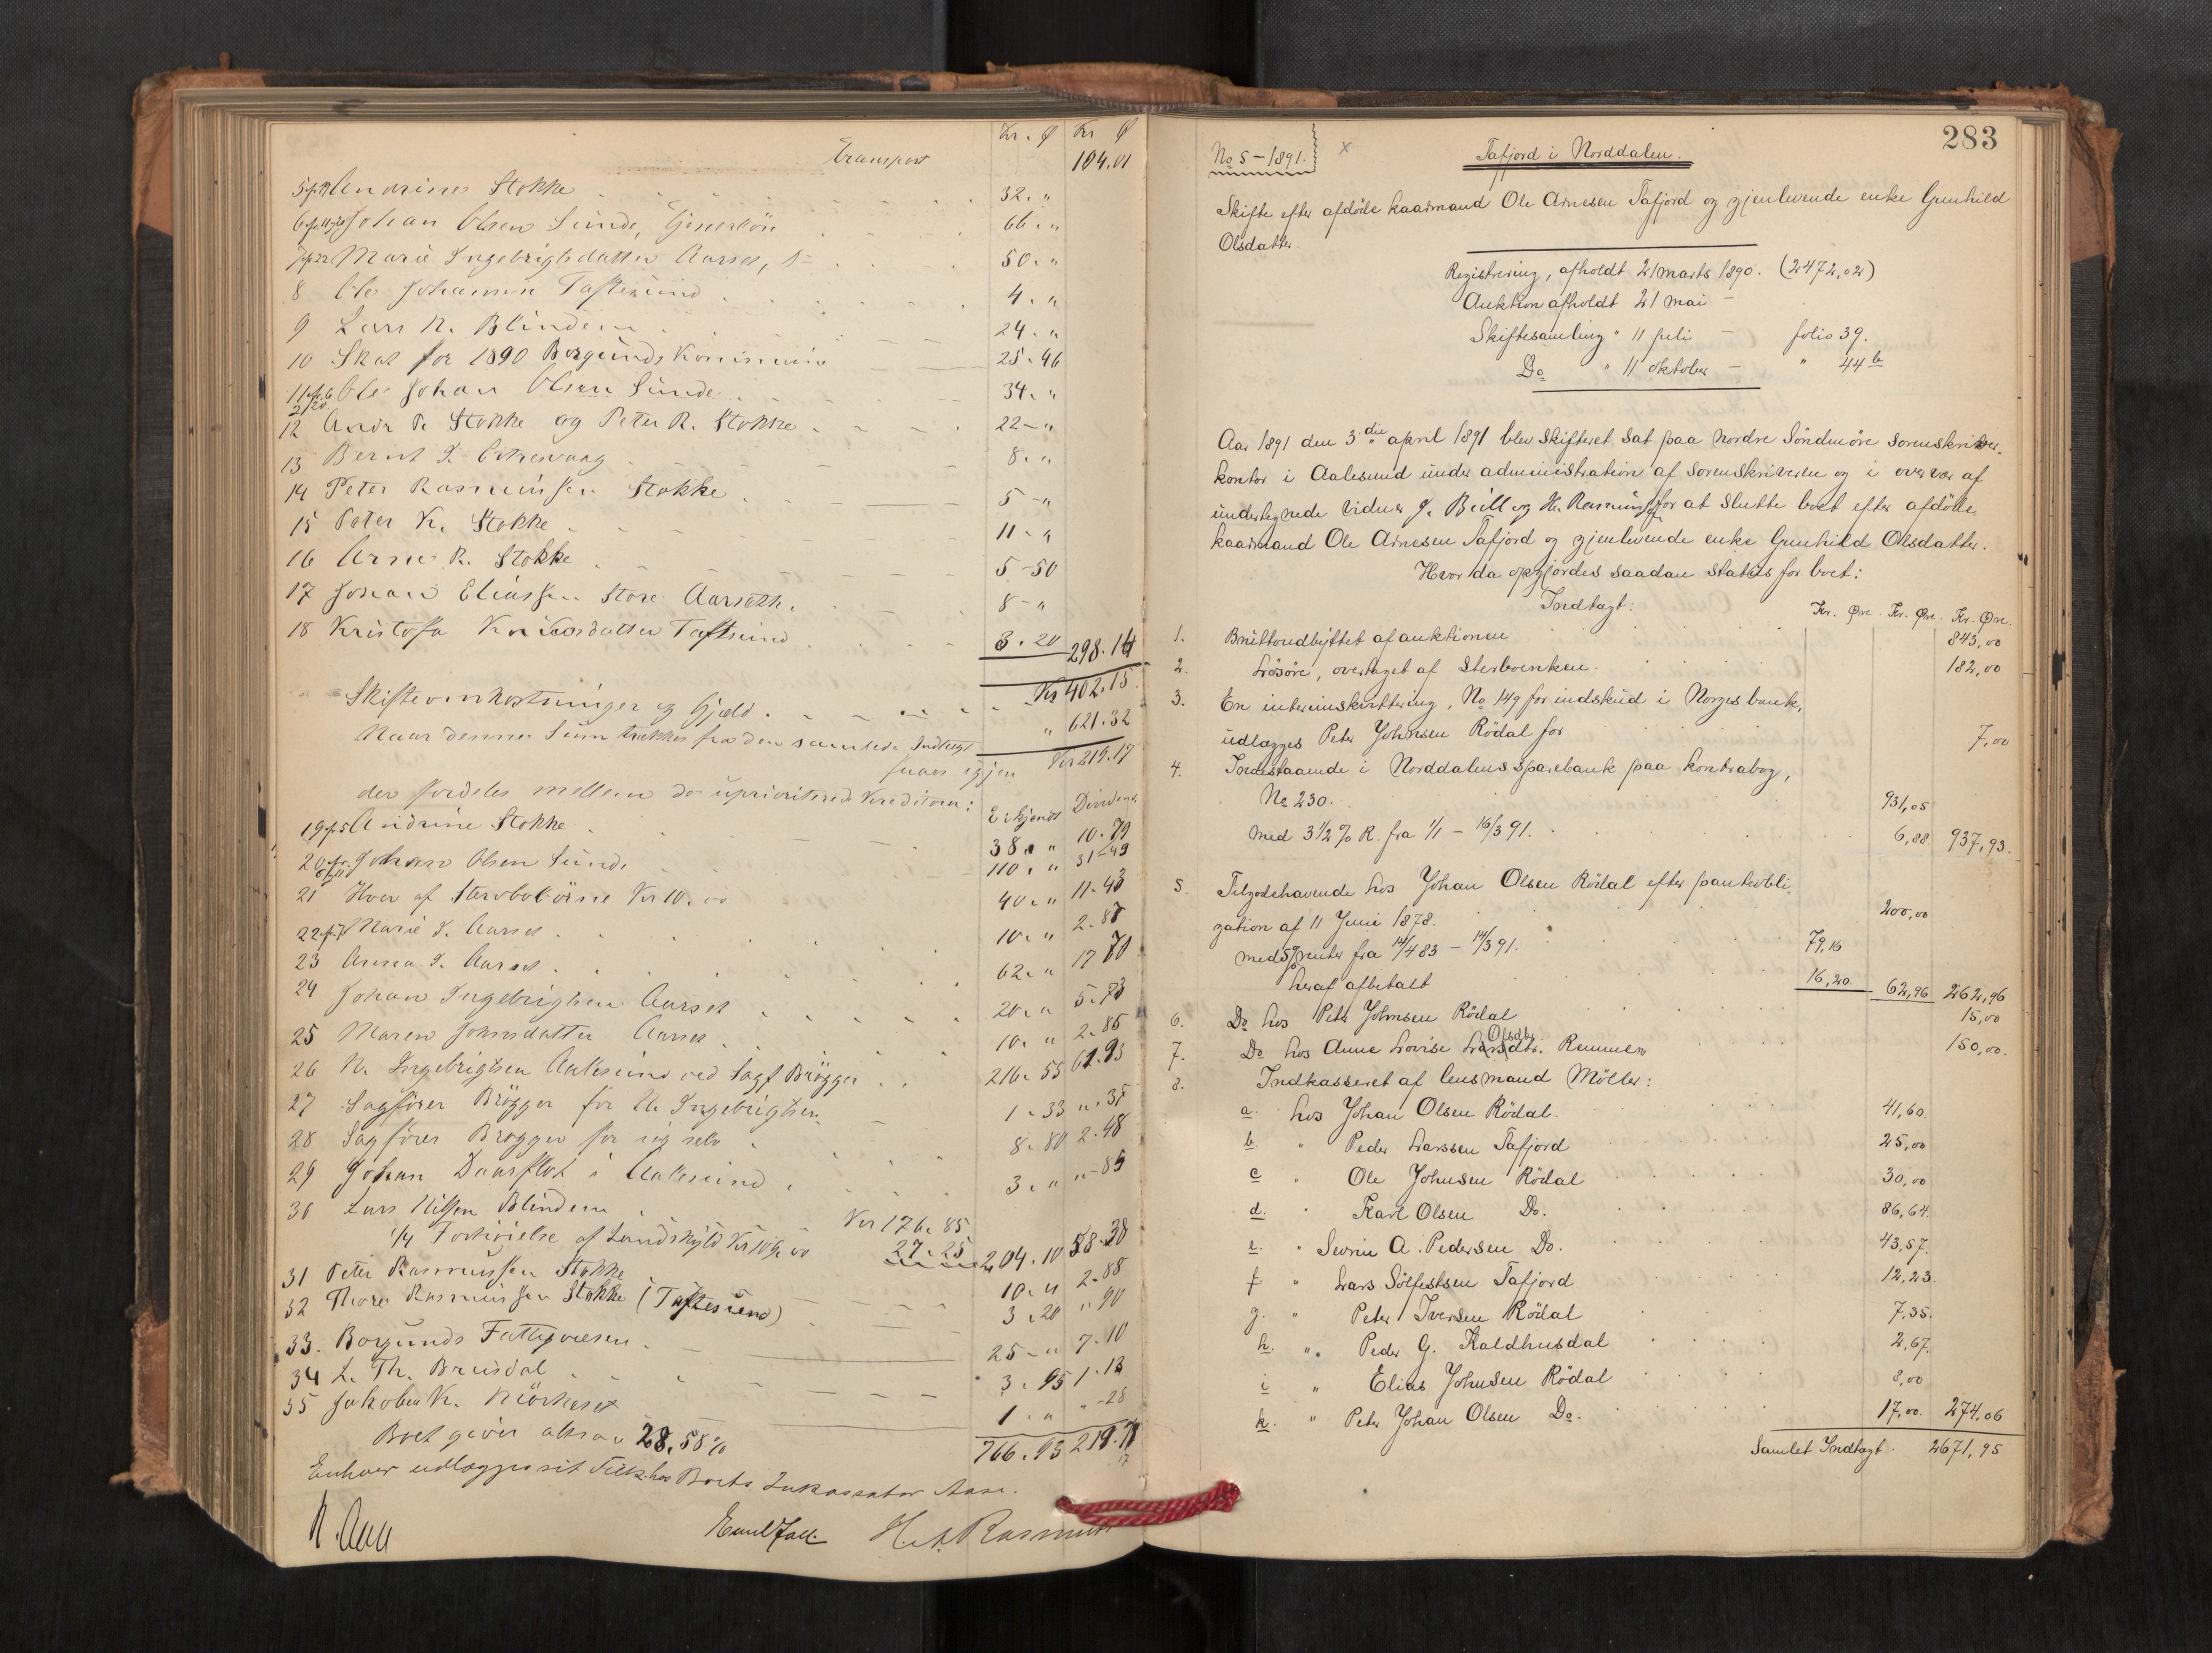 Kr. Ø Kr Ø
Transport 104.01
5 fr.19 Andrine Stokke 32. "
6 Johan Olsen Sunde, 66. "
7 fr.22 Marie Ingebrigtsdatter Aarset, 50. "
8 Ole Johannes Taftesund 4. "
9 Lars N. Blindem 24. "
10 Skat for 1890 Borgunds Kommune 25.46
11 Ole Johan Olsen Sunde 34. "
12 Andr P. Stokke og Peter R. Stokke 22 - "
13 Bernt 8. "
14 Peter Rasmussen Stokke 5 - "
15 Peter K. Stokke 11 - "
16 Arne R. Stokke 5-50
17 Johan Eliassen Store Aarseth. 8 - "
18 Kristofa Taftesund 3.20 298.14
Skifteomkostninger og Gjæld Kr 402.15
Naar denne Sum trækkes fra den samlede Indtægt " 621.32
faaes igjen Kr 219.17
der fordeles mellem de uprioriterede Kreditorer: Erkjendt Dividende
19 fr.5 Andrine Stokke 38. " 10.79
20 Johan Olsen Sunde 110. " 31-43
21 Hver af Sterbobörne Kr 10.00 40. " 11-43
22 fr.7 Marie I. Aarset 10. " 2.87
23 Anna I. Aarset 62. " 17 70
24 Johan Ingebrigtsen Aarset 20. " 5.73
25 Maren Johnsdatter Aarset 10. " 2.85
26 N. Ingebrigtsen Aalesund ved Sagf Brögger 216.55 61.93
27 Sagförer Brögger for N. Ingebrigtsen 1.33 ".38
28 Sagförer Brögger for sig selv 8.80 2.48
29 Johan Daarflot i Aalesund 3. " "-85
30 Lars Nilssen Blindem Kr 176.85
1/4 Forhöielse af Landskyld Kr 109.00 27.25 204.10 58.38
31 Peter Rasmussen Stokke 10. " 2.88
32 Thore Rasmussen Stokke (Taftesund) 3.20 " 90
33. Borgunds Fattigvæsen 25 - " 7.10
34 L. Th. Brusdal 3.95 1.13
35 Jakob K. Mörkeset 1. " "-28
Boet giver altsaa 28,58 % 766.93 219.17
Enhver udlægges sit Tilk. hos Boets Inkassator Aase.
N. Aase Emil Falk H. A. Rasmuss
283
No 5 - 1891. x Tafjord i Norddalen.
Skifte efter afdöde kaarmand Ole Arnesen Tafjord og gjenlevende enke Gunhild
Olsdatter.
Registrering, afholdt 21 marts 1890. (2472,02)
Auktion afholdt 21 mai -
Skiftesamling " 11 juli - folio 39.
Do " 11 oktober - " 44 b
Aar 1891 den 3die april 1891 blev skifteret sat paa Nordre Söndmöre sorenskriver-
kontor i Aalesund under administration af sorenskriveren og i overvær af
undertegnede vidner J. Bull og H. Rasmussen for at slutte boet efter afdöde
kaarmand Ole Arnesen Tafjord og gjenlevende enke Gunhild Olsdatter.
Hvor da opgjordes saadan status for boet:
Indtægt: Kr. Øre. Kr. Øre. Kr. Øre.
1. Bruttoudbyttet af auktionen 843,00
2. Lösöre, overtaget af Sterboenken 182,00
3. En interimskvittering, No 149 for indskud i Norges bank,
udlægges Peter Johnsen Rödal for 7,00
4. Indestaaende i Norddalens sparebank paa kontrabog,
No 230. 931,05
med 3 1/2 % R. fra 1/1 - 16/3 91. 6,88 937,93.
5. Tilgodehavende hos Johan Olsen Rödal efter panteobli-
gation af 11 Juni 1878. 200,00
med 5 % renter fra 14/4 83 - 14/3 91. 79,16
heraf afbetalt 16,20 62,96 262,96
6. Do hos Peter Johnsen Rödal 15,00
7. Do hos Anne Lovise Larsdtr. Olsdtr. Remmem 150,00.
8. Indkasseret af lensmand Möller:
a. hos Johan Olsen Rödal. 41,60.
b. " Peder Larssen Tafjord 25,00
c " Ole Johnsen Rödal 30,00
d. " Karl Olsen Do. 86,64.
e. " Severin A. Pedersen Do. 43,57.
f " Lars Sölfestsen Tafjord 12,23.
g. " Peter Iversen Rödal 7,35.
h. " Peder G. Kaldhusdal 2,67.
i " Elias Johnsen Rödal 8,00
k. " Peter Johan Olsen Do. 17,00. 274,06
Samlet Indtægt. 2671,95